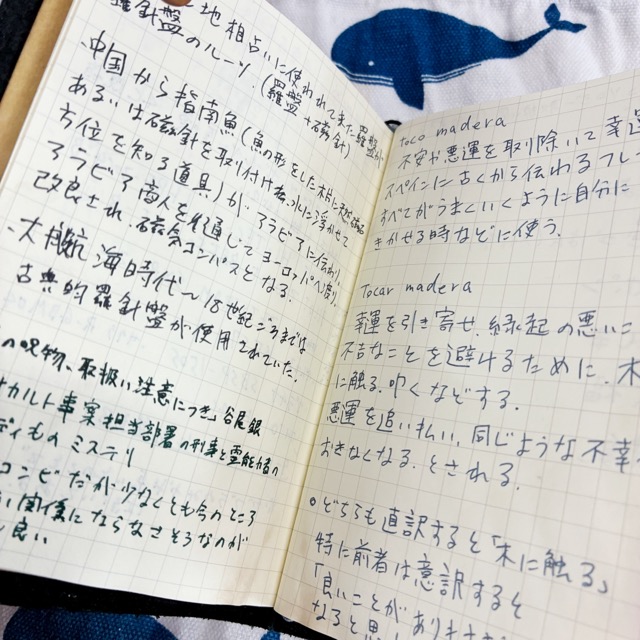 地相占いに使われて来た羅盤が
羅針盤のルーツ.(羅盤+磁針)
、中国から指南魚(魚の形をした木片に天然磁石
あるいは磁針を取り付け、水に浮かせて
方位を知る道具)が、アラビアに伝わり、
アラビア商人を通じてヨーロッパへ渡り
改良され、磁気コンパスとなる.
、大航海時代〜18世紀ごろまでは
古典的羅針盤が使用されていた.
の呪物、取扱い注意につき」谷尾銀
オカルト事案担当部署の刑事と霊能力者の
ディもの ミステリ
コンビだが少なくとも今のところ
い関係にならなさそうなのが
良い
toco madera
不安や悪運を取り除いて幸運
スペインに古くから伝わるフレー
すべてがうまくいくように自分に
きかせる時などに使う.
Tocar madera
幸運を引き寄せ、縁起の悪いこ
不吉なことを避けるために、木
に触る.叩くなどする.
悪運を追い払い、同じような不幸
おきなくなる.とされる.
○どちらも直訳すると「木に触る」
特に前者は意訳すると
「良いことがありますように
なると思